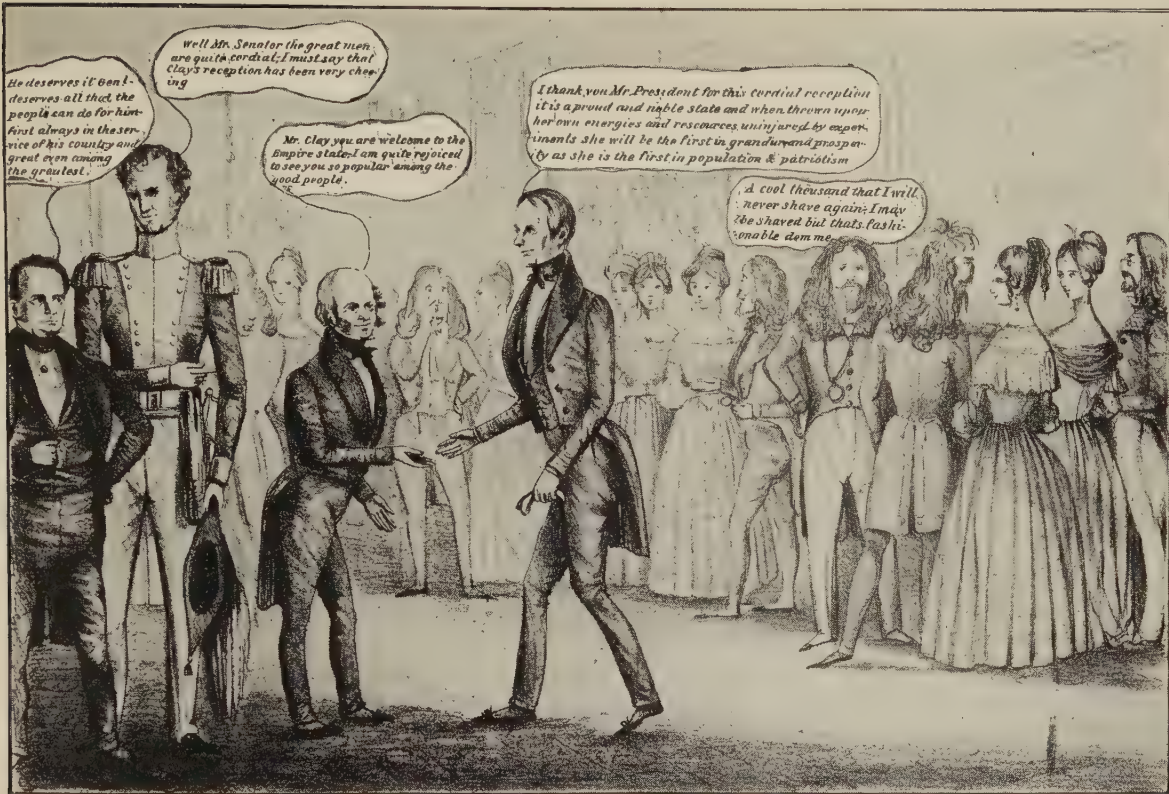 He deserves it Gen!
deserves all that the
people can do for him
first always in the ser-
vice of his country and
great even among
the greatest.
Well Mr. Senator the great men
are quite cordial; I must say that
Clay's reception has been very chee-
ing
Mr. Clay you are welcome to the
Empire state. I am quite rejoiced
to see you so popular among the
good people.
I thank you Mr. President for this cordial reception
it is a proud and noble state and when thrown upon
her own energies and rescources, uninjured by exper-
iments she will be the first in grandur and prosper-
ity as she is the first in population & patriotism
A cool thousand that I will
never shave again; I may
be shaved but thats fashi-
onable dem me